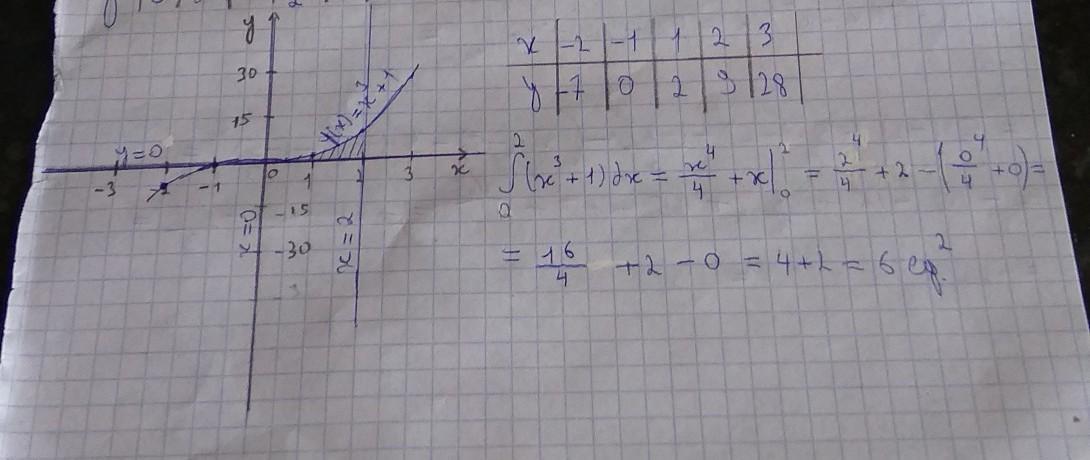 y
30
15
y=0
-3 -1 0 1 2 3 x
-15
-30
x=0
x=2
x | -2 | -1 | 1 | 2 | 3
y | -7 | 0 | 2 | 9 | 28
∫₀² (x³+1) dx = x⁴/4 + x |₀² = 2⁴/4 + 2 - (0⁴/4 + 0) =
= 16/4 + 2 - 0 = 4+2 = 6 eg.²